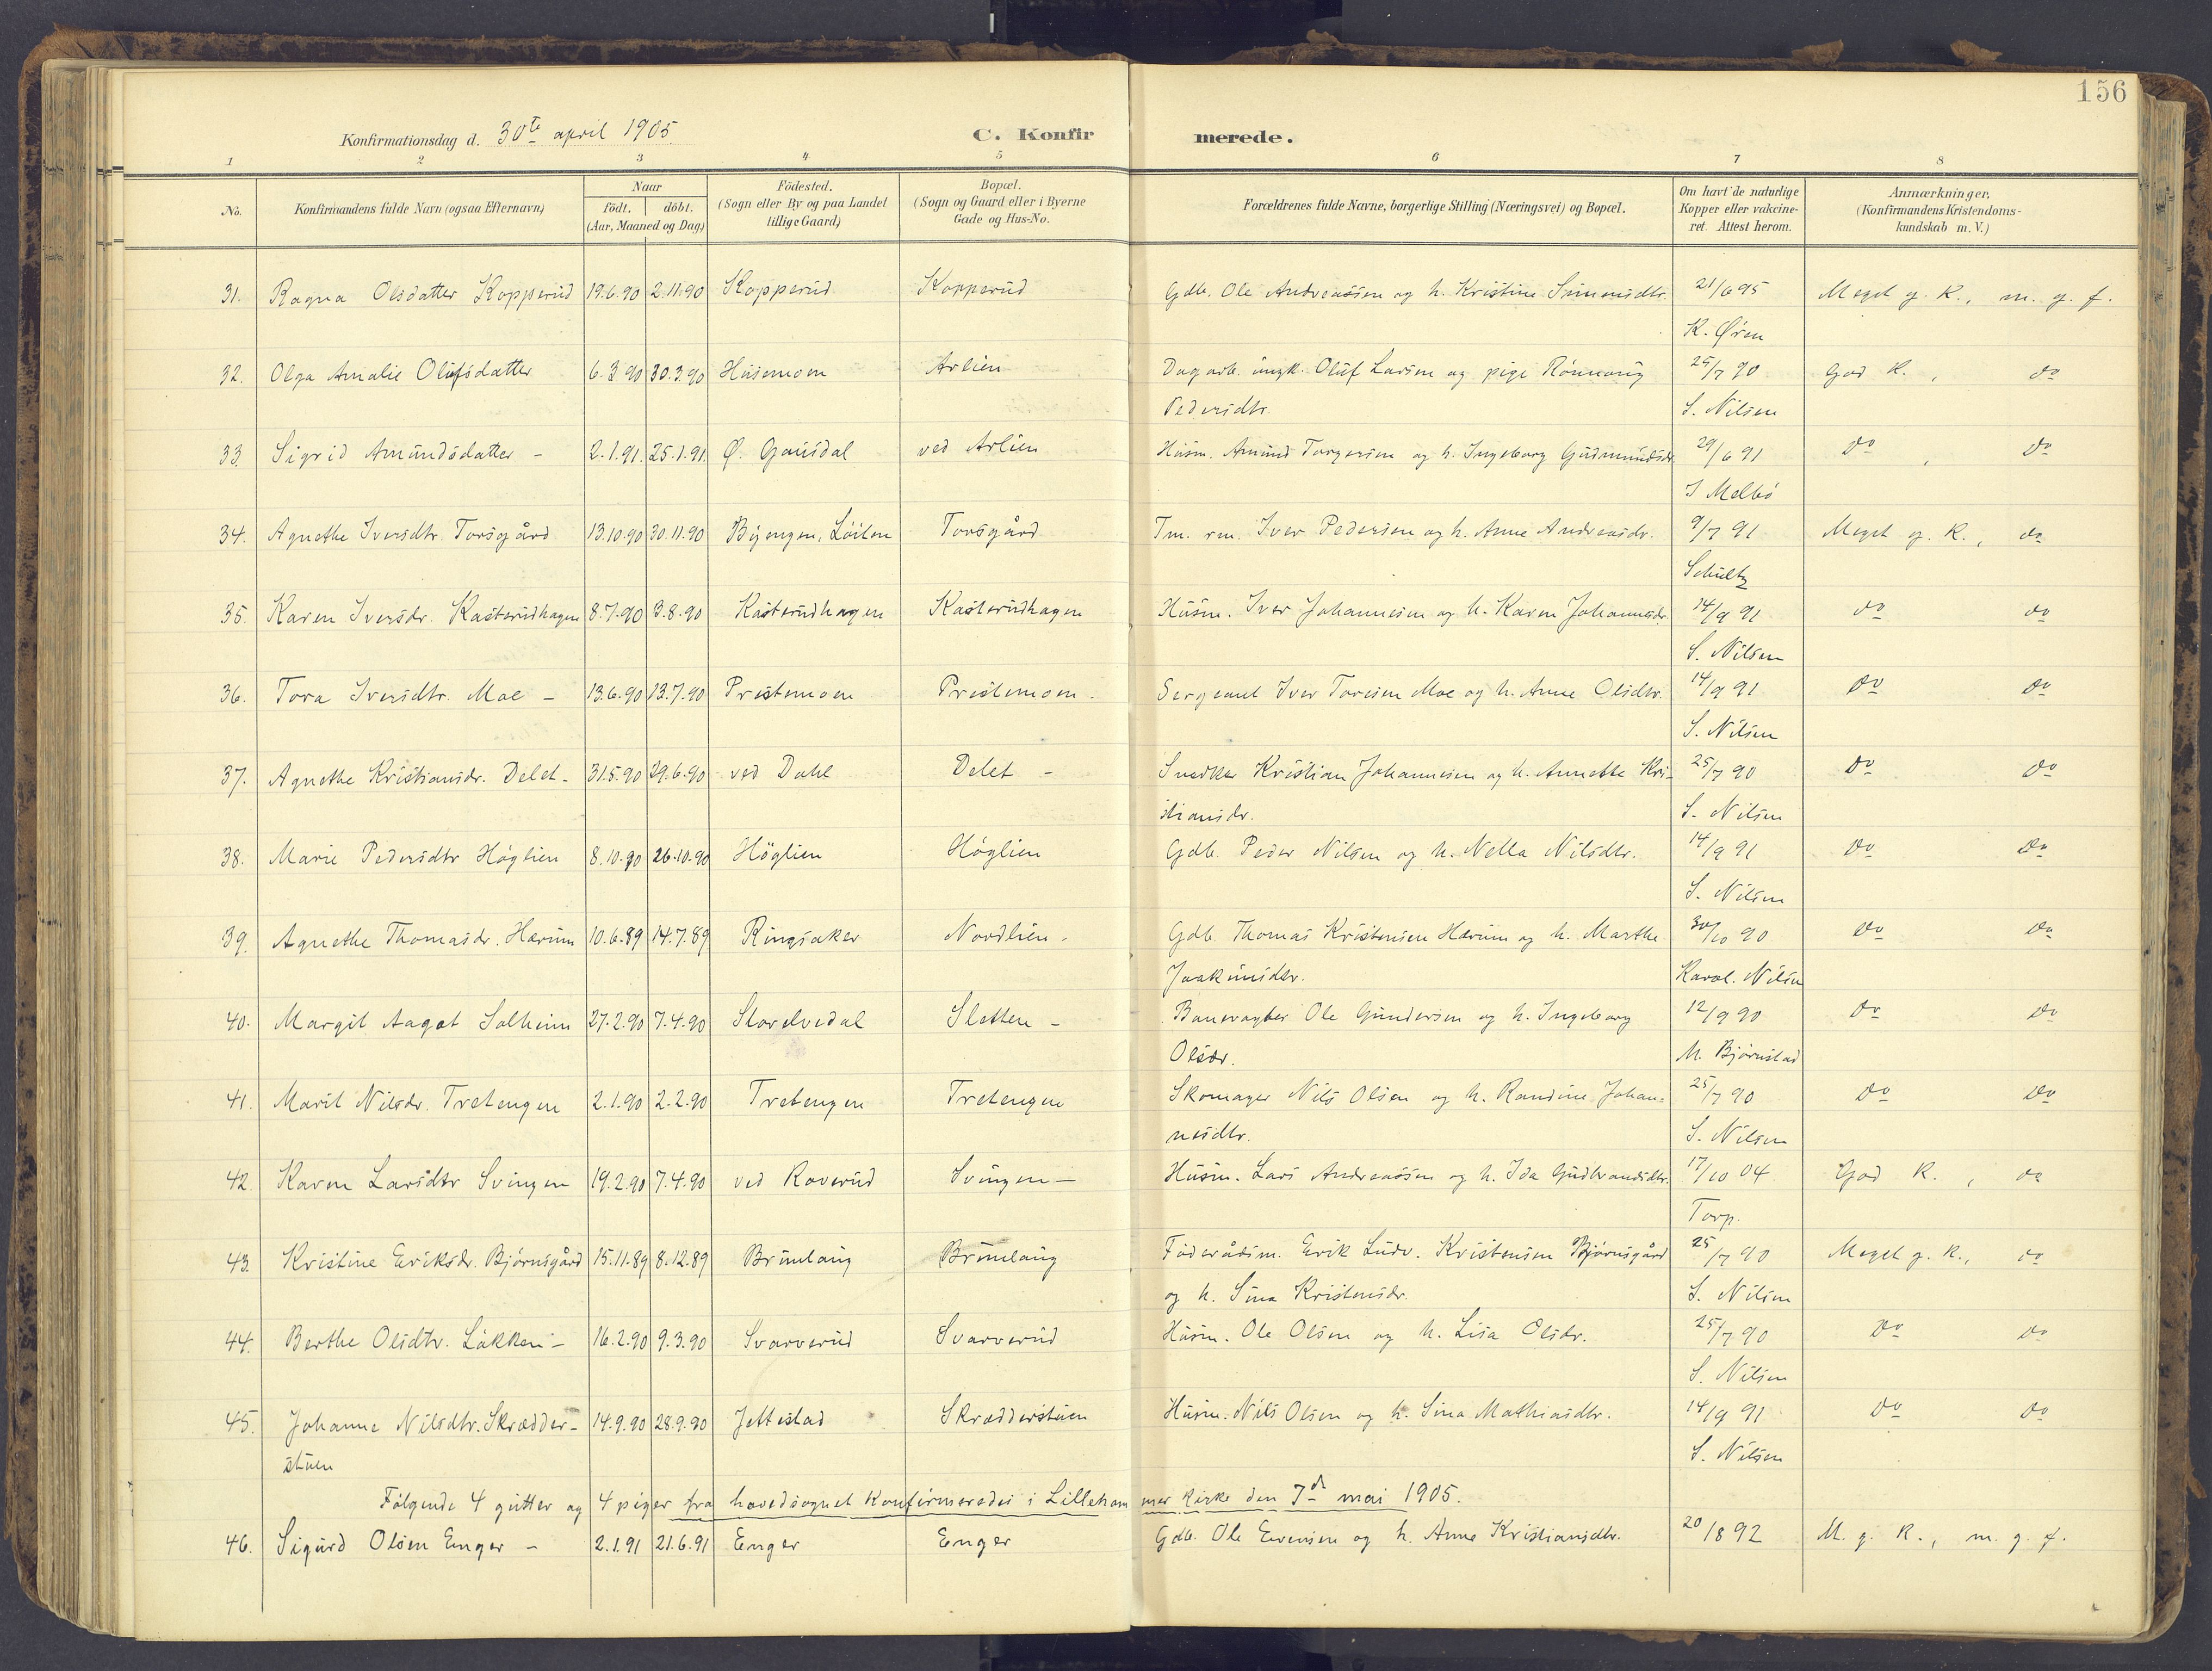 156
Konfirmationsdag d. 30te april 1905.
C. Konfirmerede.
1 2 3 4 5 6 7 8
No.
Konfirmandens fulde Navn (ogsaa Efternavn)
Naar
födt. döbt.
(Aar, Maaned og Dag)
Födested.
(Sogn eller By og paa Landet
tillige Gaard)
Bopæl.
(Sogn og Gaard eller i Byerne
Gade og Hus-No.
Forældrenes fulde Navne, borgerlige Stilling (Næringsvei) og Bopæl.
Om havt de naturlige
Kopper eller vakcine-
ret. Attest herom.
Anmærkninger.
(Konfirmandens Kristendoms-
kundskab m. V.)
31. Ragna Olsdatter Kopperud 19.6.90 2.11.90 Kopperud Kopperud Gdb. Ole Andreassen og h. Kristine Simensdtr. 21/6 95 Meget g. K., m. g. f.
K. Øren
32. Olga Amalie Olufsdatter 6.3.90 30.3.90 Husemoen Arlien Dagarb. ungk. Oluf Larsen og pige Rönnaug 25/7 90 God K., do
Pedersdtr. S. Nilsen
33. Sigrid Amundsdatter - 2.1.91. 25.1.91. Ø. Gausdal ved Arlien Husm. Amund Torgersen og h. Ingeborg Gudmundsdr. 29/6 91 do , do
J Melbö
34. Agnethe Iversdtr. Torsgård 13.10.90 30.11.90 Byengen, Löiten Torsgård Tm. rm. Iver Pedersen og h. Anne Andreasdr. 9/7 91 Meget g. K., do
Schultz
35. Karen Iversdr. Kasterudhagen 8.7.90 3.8.90 Kasterudhagen Kasterudhagen Husm. Iver Johannesen og h. Karen Johannesdr. 14/9 91 do do
S. Nilsen
36. Tora Iversdtr. Moe - 13.6.90 13.7.90 Prestemoen Prestemoen. Sergeant Iver Toresen Moe og h. Anne Olsdtr. 14/9 91 do do
S. Nilsen
37. Agnethe Kristiansdr. Delet - 31.5.90 29.6.90 ved Dahl Delet - Snedker Kristian Johannesen og h. Annette Kri- 25/7 90 do do
stiansdr. S. Nilsen
38. Marie Pedersdtr Höglien 8.10.90 26.10.90 Höglien Höglien Gdb. Peder Nilsen og h. Nella Nilsdtr. 14/9 91 do do
S. Nilsen
39. Agnethe Thomasdr. Hærum 10.6.89 14.7.89 Ringsaker Nordlien - Gdb. Thomas Kristensen Hærum og h. Marthe 30/10 90 do do
Joakimsdtr. Karol. Nilsen
40. Margit Aagot Solheim 27.2.90 7.4.90 Storelvedal Sletten - Banevogter Ole Gundersen og h. Ingeborg 12/9 90 do do
Olsdr. M. Bjørnstad
41. Marit Nilsdr. Tretengen 2.1.90 2.2.90 Tretengen Tretengen Skomager Nils Olsen og h. Randine Johan- 25/7 90 do do
nesdtr. S. Nilsen
42. Karen Larsdtr Svingen 19.2.90 7.4.90 ved Roverud Svingen - Husm. Lars Andreassen og h. Ida Gudbrandsdtr. 17/10 04 God K., do
Torp.
43. Kristine Eriksdr. Bjørnsgård 15.11.89 8.12.89 Brunlaug Brunlaug Föderådsm. Erik Ludv. Kristensen Bjørnsgård 25/7 90 Meget g. K., do
og h. Sina Kristensdr. S. Nilsen
44. Berthe Olsdtr. Løkken - 16.2.90 9.3.90 Svarverud Svarverud Husm. Ole Olsen og h. Lisa Olsdr. 25/7 90 do do
S. Nilsen
45. Johanne Nilsdtr. Skrædder- 14.9.90 28.9.90 Jettestad Skrædderstuen Husm. Nils Olsen og h. Sina Mathiasdtr. 14/9 91 do do
stuen S. Nilsen
Følgende 4 gutter og 4 piger fra hovedsognet konfirmeredes i Lillehammer kirke den 7de mai 1905.
46. Sigurd Olsen Enger - 2.1.91 21.6.91 Enger Enger Gdb. Ole Evensen og h. Anne Kristiansdtr. 20/8 92 M. g. K., m. g. f.